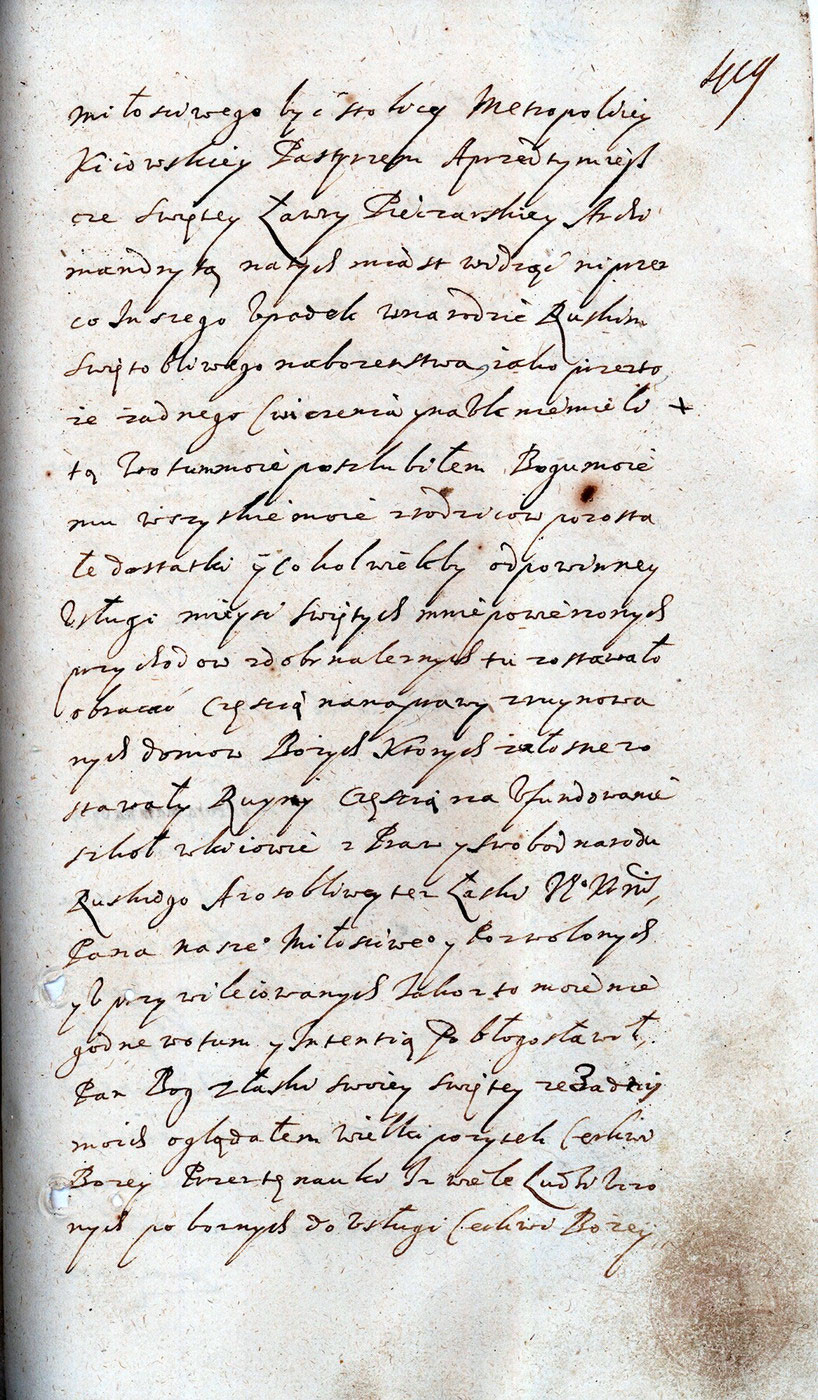 419
miłosciwego być stolicy Metropoliey
Kiiowskiey Pasterzem Aprzedtym iesz
cze Swiętey Ławry Pieczarskiey Archi
mandrytą natych miast widząć niprze
co Inszego Vpadek wnarodzie Ruskim
Swiętobliwego naborzenstwa, iako przezto
ze zadnego Cwiczenia ynauk niemieli +
tą Votum moie poszlubiłem Bogu moie
mu wszystkie moie zrodzicow pozosta
łe dostatki y cokolwiekby odpowinney
Vsługi mieysc Swiętych mnie powierzonych
przychodow zdobr naleznych tu zostawało
obracać Częscią nanaprawy zruynowa
nych domow Bozych Ktorych załosne zo
stawały Ruyny Częscią na Vfundowanie
szkoł wkiiowie z Praw y swobod narodu
Ruskiego A zosobliwey tez Łaski
Pana nasze° Miłosciwe° y Pozwolonych
y Vprzywileiowanych Iakoz to moie nie
godne votum y Intentią Pobłogosławił,
Pan Bog złaski swoiey swiętey ze Zadny
moich oglądałem wielki pozytek Cerkwi
Bozey Przez tę nauki Iz wiele Ludzi Vczo
nych poboznych do Vsługi Cerkwi Bozey,